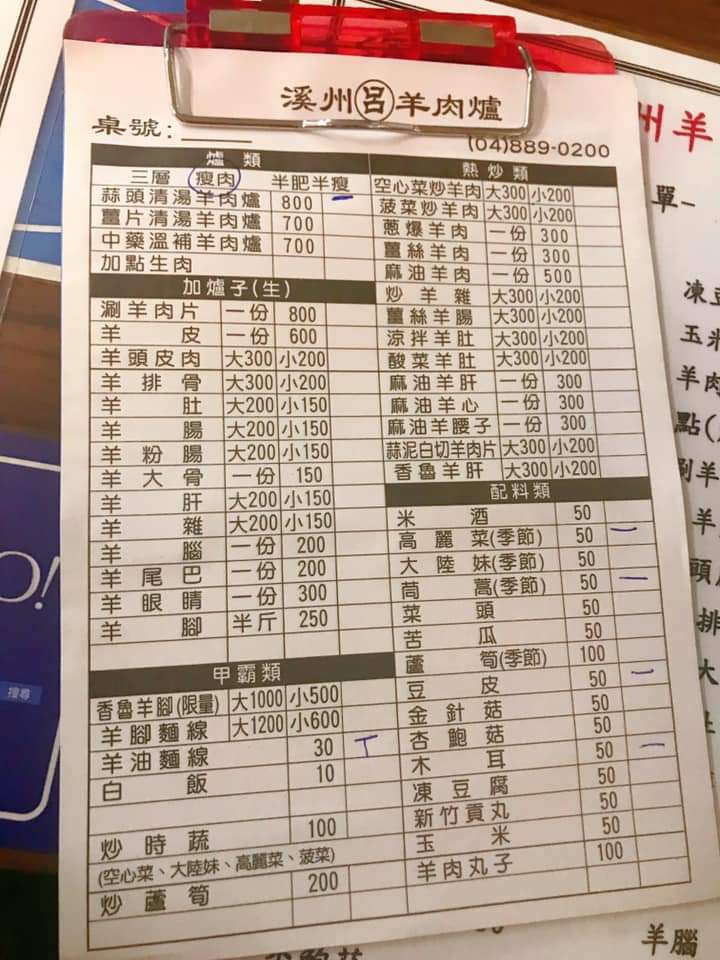 溪州呂羊肉爐
桌號:
(04)889-0200
爐類
三層 瘦肉 半肥半瘦
蒜頭清湯羊肉爐 800
薑片清湯羊肉爐 700
中藥溫補羊肉爐 700
加點生肉
加爐子(生)
涮羊肉片 一份 800
羊皮 一份 600
羊頭皮肉 大300 小200
羊排骨 大300 小200
羊肚 大200 小150
羊腸 大200 小150
羊粉腸 大200 小150
羊大骨 一份 150
羊肝 大200 小150
羊雜 大200 小150
羊腦 一份 200
羊尾巴 一份 200
羊眼睛 一份 300
羊腳 半斤 250
甲霸類
香魯羊腳(限量) 大1000 小500
羊腳麵線 大1200 小600
羊油麵線 30 丅
白飯 10
炒時蔬 100
(空心菜、大陸妹、高麗菜、菠菜)
炒蘆筍 200
熱炒類
空心菜炒羊肉 大300 小200
菠菜炒羊肉 大300 小200
蔥爆羊肉 一份 300
薑絲羊肉 一份 300
麻油羊肉 一份 500
炒羊雜 大300 小200
薑絲羊腸 大300 小200
涼拌羊肚 大300 小200
酸菜羊肚 大300 小200
麻油羊肝 一份 300
麻油羊心 一份 300
麻油羊腰子 一份 300
蒜泥白切羊肉片 大300 小200
香魯羊肝 大300 小200
配料類
米酒 50
高麗菜(季節) 50 一
大陸妹(季節) 50
茼蒿(季節) 50 一
菜頭 50
苦瓜 50
蘆筍(季節) 100
豆皮 50 一
金針菇 50
杏鮑菇 50
木耳 50 一
凍豆腐 50
新竹貢丸 50
玉米 50
羊肉丸子 100
O!
搜尋
州羊
單一
凍豆
玉米
羊肉
點(
涮羊
羊
頭
排
大
羊腦